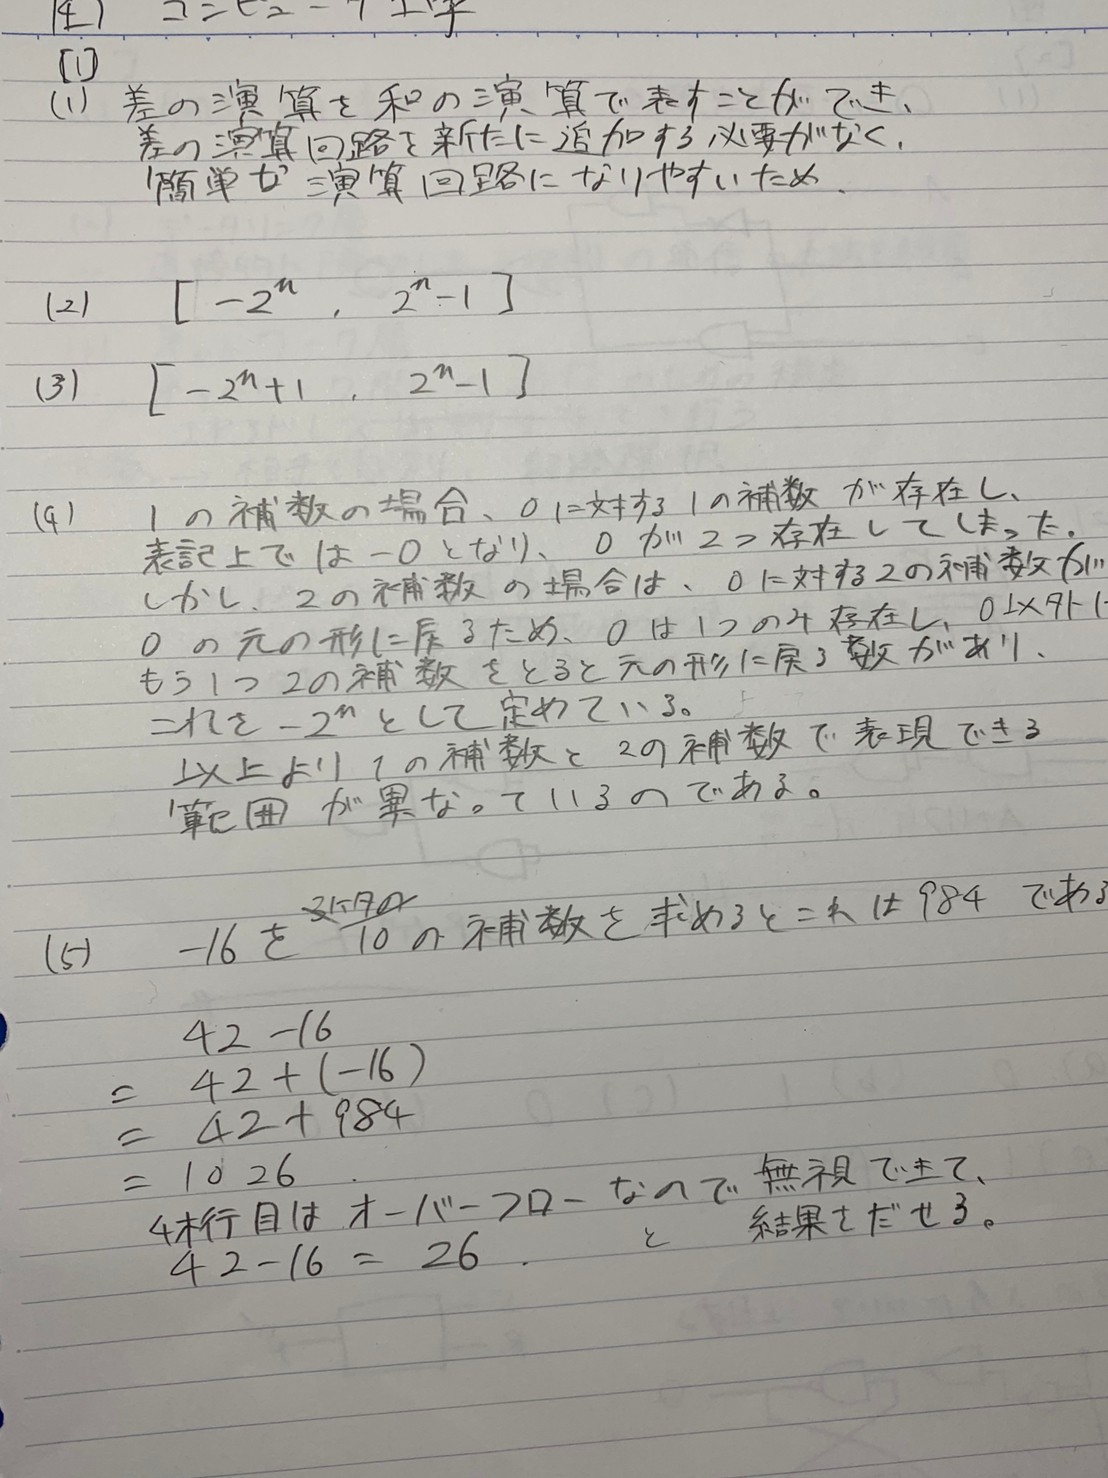 [4] コンピュータ工学
[1]
(1) 差の演算を和の演算で表すことができ、
差の演算回路を新たに追加する必要がなく、
簡単な演算回路になりやすいため.
(2) [ -2ⁿ , 2ⁿ-1 ]
(3) [ -2ⁿ+1 , 2ⁿ-1 ]
(4) 1の補数の場合、0に対する1の補数が存在し、
表記上では-0となり、0が2つ存在してしまった。
しかし、2の補数の場合は、0に対する2の補数が
0の元の形に戻るため、0は1つのみ存在し、0以外に
もう1つ2の補数をとると元の形に戻る数があり、
これを-2ⁿとして定めている。
以上より1の補数と2の補数で表現できる
範囲が異なっているのである。
(5) -16を10の補数を求めるとこれは984である
42-16
= 42+(-16)
= 42+984
= 1026
4桁目はオーバーフローなので無視できて、
42-16 = 26. と 結果をだせる。